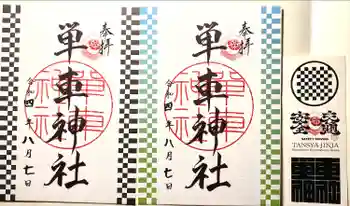 奉拝
単車神社
令和四年八月七日
奉拝
単車神社
令和四年八月七日
TANSYA JINJA